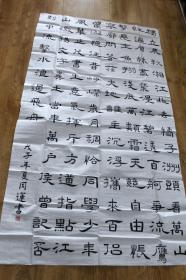 獨立寒秋湘江北去橘子洲頭看萬山
紅遍層林盡染漫江碧透百舸爭流鷹
擊長空魚翔淺底萬類霜天競自由悵
寥廓問蒼茫大地誰主沉浮攜來百侶
曾遊憶往昔崢嶸歲月稠恰同學少年
風華正茂書生意氣揮斥方遒指點江
山激揚文字糞土當年萬戶侯曾記否
到中流擊水浪遏飛舟
戊子年夏